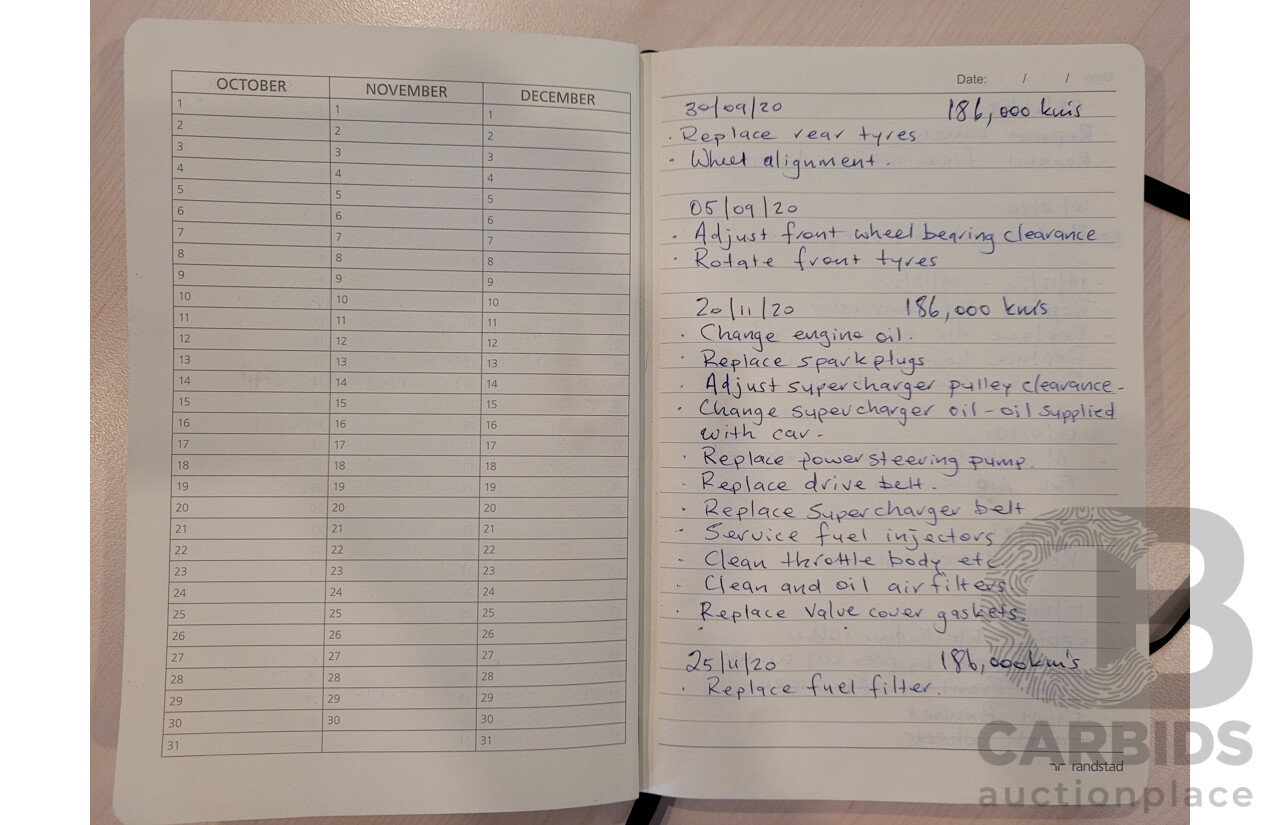 OCTOBER NOVEMBER DECEMBER
1 1 1
2 2 2
3 3 3
4 4 4
5 5 5
6 6 6
7 7 7
8 8 8
9 9 9
10 10 10
11 11 11
12 12 12
13 13 13
14 14 14
15 15 15
16 16 16
17 17 17
18 18 18
19 19 19
20 20 20
21 21 21
22 22 22
23 23 23
24 24 24
25 25 25
26 26 26
27 27 27
28 28 28
29 29 29
30 30 30
31 31
Date: / /
30/09/20 186,000 km's
· Replace rear tyres
· Wheel alignment.
05/09/20
· Adjust front wheel bearing clearance
· Rotate front tyres
20/11/20 186,000 km's
· Change engine oil.
· Replace spark plugs
· Adjust supercharger pulley clearance-
· Change supercharger oil - oil supplied
with car-
· Replace power steering pump.
· Replace drive belt.
· Replace Supercharger belt
· Service fuel injectors
· Clean throttle body etc
· Clean and oil air filters
· Replace Valve cover gaskets.
25/11/20 186,000 km's
· Replace fuel filter.
randstad
CARBIDS
auctionplace